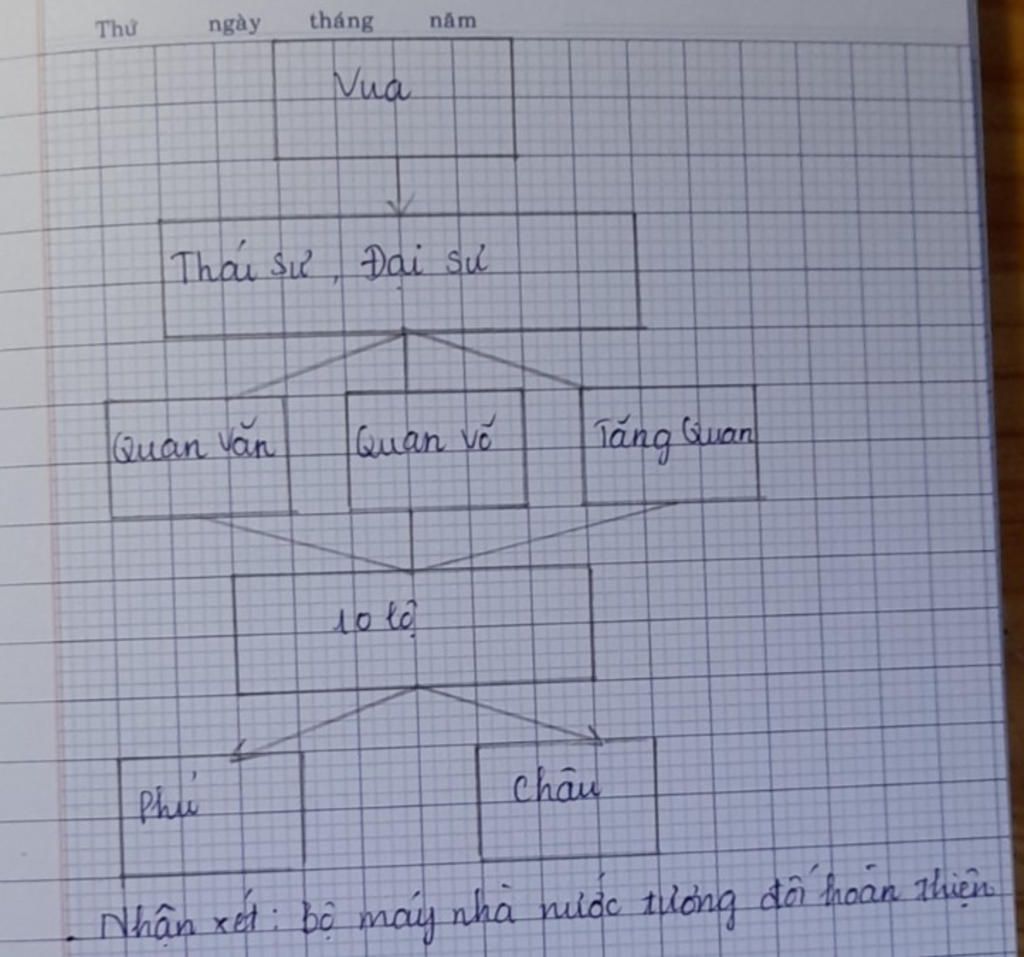 Thứ ngày tháng năm
Vua
Thái sư, Đại sư
Quan văn Quan võ Tăng Quan
10 lộ
Phủ Châu
. Nhận xét: bộ máy nhà nước tương đối hoàn thiện